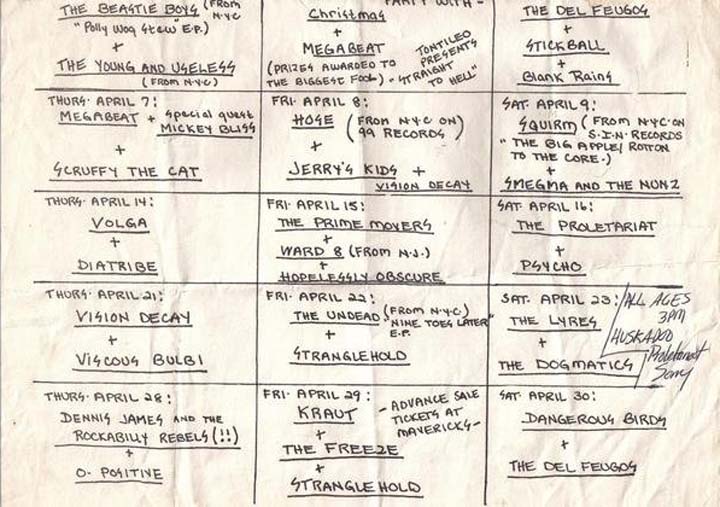 THE BEASTIE BOYS (FROM N.Y.C
"Polly Wog Stew" E.P.)
+
THE YOUNG AND USELESS
(FROM N.Y.C)
PARTY WITH -
Christmas
+
MEGABEAT
(PRIZES AWARDED TO
THE BIGGEST FOOL)
TONTILEO
PRESENTS
"STRAIGHT
TO HELL"
THE DEL FEUGOS
+
STICKBALL
+
Blank Rains
THURS. APRIL 7:
MEGABEAT + Special guest
MICKEY BLISS
+
SCRUFFY THE CAT
FRI. APRIL 8:
HOSE (FROM N.Y.C ON
99 RECORDS)
+
JERRY'S KIDS +
VISION DECAY
SAT. APRIL 9:
SQUIRM (FROM N.Y.C. ON
S.I.N. RECORDS
"THE BIG APPLE/ ROTTON
TO THE CORE.)
+
SMEGMA AND THE NUNZ
THURS. APRIL 14:
VOLGA
+
DIATRIBE
FRI. APRIL 15:
THE PRIME MOVERS
+
WARD 8 (FROM N.J.)
+
HOPELESSLY OBSCURE
SAT. APRIL 16:
THE PROLETARIAT
+
PSYCHO
THURS. APRIL 21:
VISION DECAY
+
VISCOUS BULBI
FRI. APRIL 22:
THE UNDEAD (FROM N.Y.C)
"NINE TOES LATER"
E.P.
+
STRANGLEHOLD
SAT. APRIL 23:
THE LYRES
+
THE DOGMATICS
ALL AGES
3PM
HUSKADOO
THURS. APRIL 28:
DENNIS JAMES AND THE
ROCKABILLY REBELS (!!)
+
O. POSITIVE
FRI. APRIL 29:
KRAUT
+
THE FREEZE
+
STRANGLEHOLD
- ADVANCE SALE
TICKETS AT
MAVERICKS -
SAT. APRIL 30:
DANGEROUS BIRDS
+
THE DEL FEUGOS